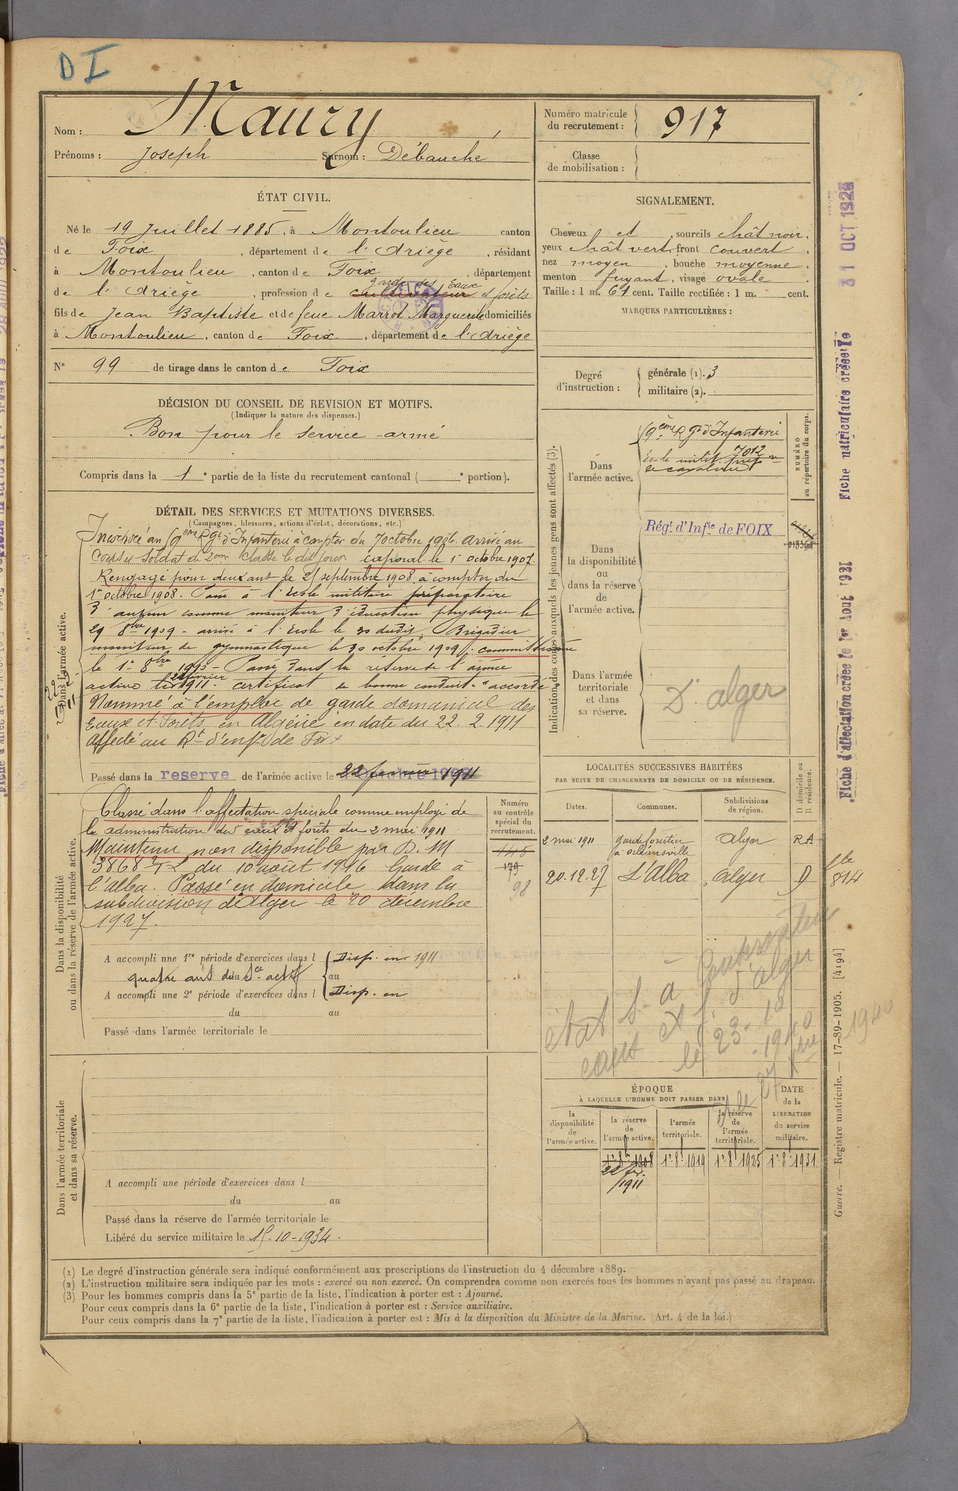 DI
Nom : Maury
Prénoms : Joseph Surnom : Débauché
Numéro matricule du recrutement : 917
Classe de mobilisation :
ÉTAT CIVIL.
Né le 19 Juillet 1885, à Montoulieu canton
de Foix, département de l'Ariège, résidant
à Montoulieu, canton de Foix, département
garde des Eaux
de l'Ariège, profession de cultivateur et forêts
fils de Jean Baptiste et de feue Marrot Marguerite domiciliés
à Montoulieu, canton de Foix, département de l'Ariège
N° 99 de tirage dans le canton de Foix
SIGNALEMENT.
Cheveux et sourcils chât noir,
yeux chât vert front couvert
nez moyen, bouche moyenne,
menton fuyant, visage ovale
Taille : 1 m. 61 cent. Taille rectifiée : 1 m. cent.
MARQUES PARTICULIÈRES :
Degré d'instruction : générale (1). 3
militaire (2).
DÉCISION DU CONSEIL DE REVISION ET MOTIFS.
(Indiquer la nature des dispenses.)
Bon pour le service armé
Compris dans la 1e partie de la liste du recrutement cantonal ( e portion).
DÉTAIL DES SERVICES ET MUTATIONS DIVERSES.
(Campagnes, blessures, actions d'éclat, décorations, etc.)
Dans l'armée active.
Incorporé au 59eme Rgt d'Infanterie à compter du 7 octobre 1906. Arrivé au
Corps et Soldat de 2eme classe le dit jour caporal le 1r octobre 1907.
Rengagé pour deux ans le 25 septembre 1908 à compter du
1er octobre 1908. Passé à l'Ecole militaire préparatoire
comme moniteur d'éducation physique le
29 8bre 1909 - arrivé à l'Ecole le 30 dudit, Brigadier
moniteur de gymnastique le 30 octobre 1909. commissionné
Passé dans la réserve de l'armée
active 1911. certificat de bonne conduite "accordé"
Nommé à l'emploi de garde domanial des
Eaux et Forêts en Algérie en date du 22.2.1911
Affecté au Rt d'Infie de Foix
Passé dans la reserve de l'armée active le 22 février 1911
Indication des corps auxquels les jeunes gens sont affectés (3).
Dans l'armée active.
59eme Rgt d'Infanterie
NUMÉRO au répertoire du corps.
7012
Dans la disponibilité ou dans la réserve de l'armée active.
Régt d'Infie de FOIX
Dans l'armée territoriale et dans sa réserve.
Dt alger
Dans la disponibilité ou dans la réserve de l'armée active.
Classé dans l'affectation spéciale comme employé de
la administration des eaux et forêts du 2 mai 1911
Maintenu non disponible par D. M
du 10 août 1916 Garde à
l'Alba. Passé en domicile dans la
subdivision d'Alger le 20 décembre
1927.
A accompli une 1re période d'exercices dans l Disp. en 1911
quatre ans du Sce actif au
A accompli une 2e période d'exercices dans l Disp. en
du au
Passé dans l'armée territoriale le
Numéro au contrôle spécial du recrutement.
179
98
LOCALITÉS SUCCESSIVES HABITÉES
PAR SUITE DE CHANGEMENTS DE DOMICILE OU DE RÉSIDENCE.
Dates. Communes. Subdivisions de région. D domicile ou R résidence.
2 mai 1911 Garde forestier à Orléansville Alger RA
20.12.27 L'Alba alger D
814
ÉPOQUE
À LAQUELLE L'HOMME DOIT PASSER DANS
la disponibilité de l'armée active.
la réserve de l'armée active.
l'armée territoriale.
la réserve de l'armée territoriale.
DATE de la LIBÉRATION du service militaire.
1r 8bre 1908 1r 8 1919 1r 8 1925 1r 8 1931
22 fév. 1911
Dans l'armée territoriale et dans sa réserve.
A accompli une période d'exercices dans l
du au
Passé dans la réserve de l'armée territoriale le
Libéré du service militaire le 15-10-1934.
(1) Le degré d'instruction générale sera indiqué conformément aux prescriptions de l'instruction du 4 décembre 1889.
(2) L'instruction militaire sera indiquée par les mots : exercé ou non exercé. On comprendra comme non exercés tous les hommes n'ayant pas passé au drapeau.
(3) Pour les hommes compris dans la 5e partie de la liste, l'indication à porter est : Ajourné.
Pour ceux compris dans la 6e partie de la liste, l'indication à porter est : Service auxiliaire.
Pour ceux compris dans la 7e partie de la liste, l'indication à porter est : Mis à la disposition du Ministre de la Marine. (Art. 4 de la loi.)
Guerre. — Registre matricule. — 17-89-1905. [4194]
Fiche d'affectation créée le 1er Aout 1931
Fiche matriculaire créée le 31 OCT 1928